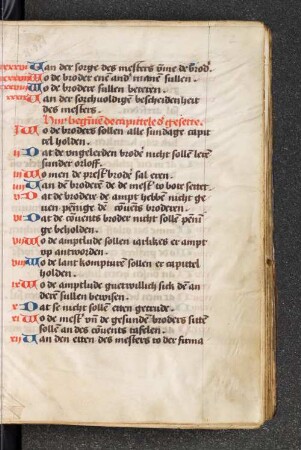 xxxvi Uan der sorge des mesters vm̄e de brod'
xxxvii Wo de broder enen and' manen sullen .
xxxviii Wo de broder sullen beteren .
xxxix Uan der sorchuoldigen bescheidenheit
des mesters .
Hir begȳnē de capittele d' gesette .
I Wo de broders sollen alle sundage capit
tel holden .
ii Dat de vngelerden brod'e nicht sollē lerē
sunder orloff .
iii Wo men de prest' brod'e sal eren .
iiii Uan dē broderē de de mest' to bote settet .
v Dat de brodere de ampt hebbē nicht ge
uen pēnige dē couēts broderen .
vi Dat de couēts broder nicht sollē pēnī
ge beholden .
vii Wo de amptlude sollen iarlikes er ampt
vp antworden .
viii Wo de lant kompture sollen er capittel
holden .
ix Wo de amptlude guetwillich sich dē an
derē sullen bewisen .
x Dat se nicht sollē etten getrude .
xi Wo de mest' vn̄ de gesundē broders sittē
sollē an des couents tafelen .
xii Uan den etten des mesters to der firma